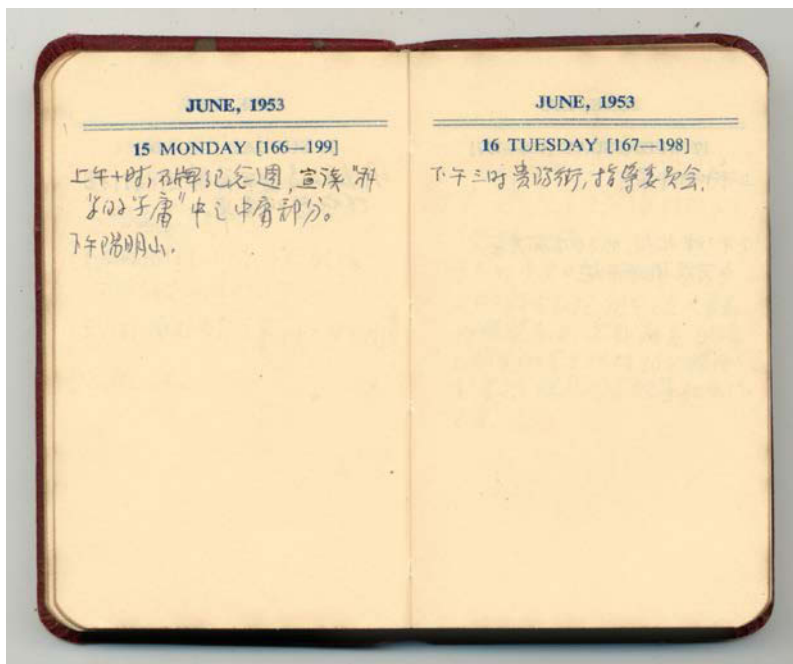 JUNE, 1953
15 MONDAY [166—199]
上午十时, 石牌纪念週, 宣读 "科
学的学庸" 中之中庸部分。
下午陽明山.
JUNE, 1953
16 TUESDAY [167—198]
下午三时贵阳街, 指导委员会.